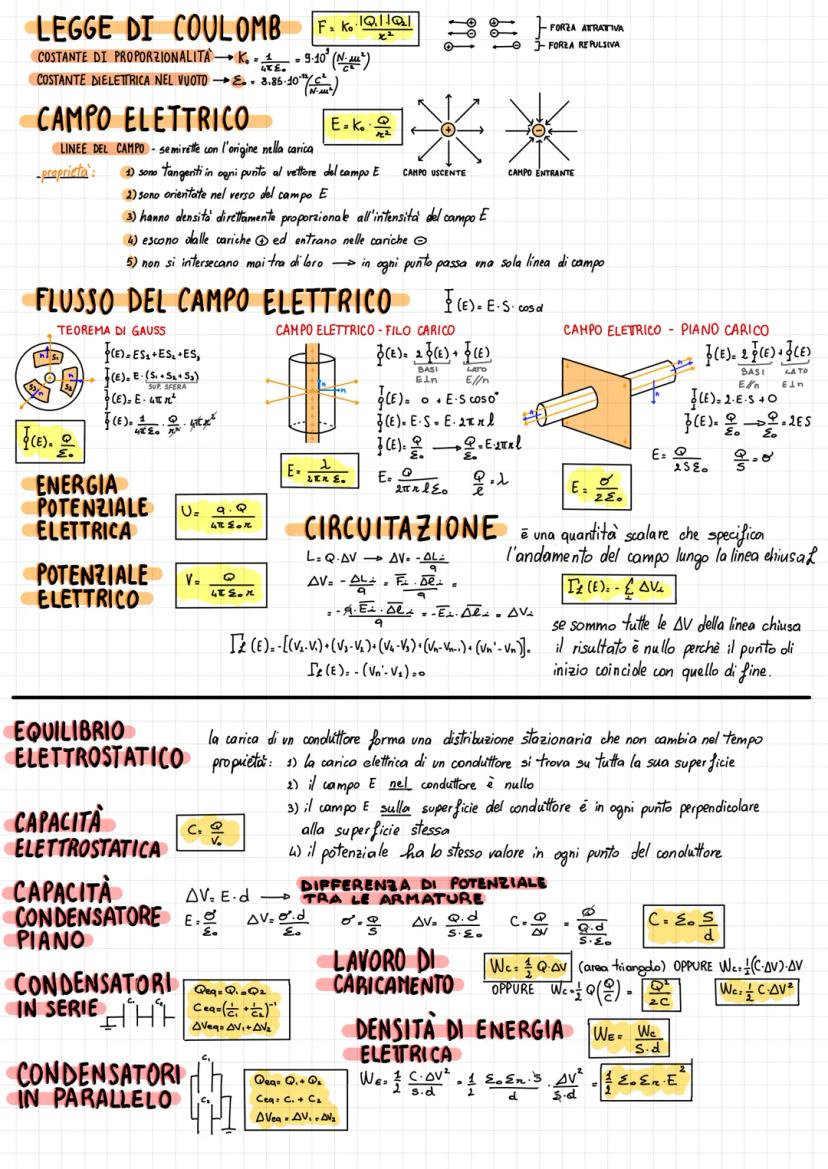 LEGGE DI COULOMB
F = K₀ · |Q₁|·|Q₂| / r²
FORZA ATTRATTIVA
FORZA REPULSIVA
COSTANTE DI PROPORZIONALITÀ → K₀ = 1/4πε₀ = 9·10⁹ (N·m²/C²)
COSTANTE DIELETTRICA NEL VUOTO → ε₀ = 8,85·10⁻¹² (C²/N·m²)
CAMPO ELETTRICO
E = K₀ · Q/r²
LINEE DEL CAMPO - semirette con l'origine nella carica
CAMPO USCENTE
CAMPO ENTRANTE
proprietà:
1) sono tangenti in ogni punto al vettore del campo E
2) sono orientate nel verso del campo E
3) hanno densità direttamente proporzionale all'intensità del campo E
4) escono dalle cariche ⊕ ed entrano nelle cariche ⊖
5) non si intersecano mai tra di loro → in ogni punto passa una sola linea di campo
FLUSSO DEL CAMPO ELETTRICO
Φ(E) = E · S · cosα
TEOREMA DI GAUSS
S₁ S₂ S₃
n n n
Φ(E) = ES₁ + ES₂ + ES₃
Φ(E) = E · (S₁ + S₂ + S₃)
SUP. SFERA
Φ(E) = E · 4πr²
Φ(E) = 1/4πε₀ · Q/r² · 4πr²
Φ(E) = Q/ε₀
CAMPO ELETTRICO - FILO CARICO
n
Φ(E) = 2Φ(E) + Φ(E)
BASI LATO
E⊥n E//n
Φ(E) = 0 + E·S cos0°
Φ(E) = E·S = E·2πrl
Φ(E) = Q/ε₀ → Q/ε₀ = E·2πrl
E = Q/2πrlε₀ Q/l = λ
E = λ/2πrε₀
CAMPO ELETTRICO - PIANO CARICO
n n n
Φ(E) = 2Φ(E) + Φ(E)
BASI LATO
E//n E⊥n
Φ(E) = 2·E·S + 0
Φ(E) = Q/ε₀ → Q/ε₀ = 2ES
E = Q/2Sε₀ Q/S = σ
E = σ/2ε₀
ENERGIA
POTENZIALE
ELETTRICA
U = q·Q/4πε₀r
POTENZIALE
ELETTRICO
V = Q/4πε₀r
CIRCUITAZIONE
è una quantità scalare che specifica
l'andamento del campo lungo la linea chiusa ℒ
L = Q·ΔV → ΔV = -ΔLᵢ/q
ΔV = -ΔLᵢ/q = Fᵢ·Δlᵢ/q =
= -q·Eᵢ·Δlᵢ/q = -Eᵢ·Δlᵢ = ΔVᵢ
Γℒ(E) = -Σᵢ ΔVᵢ
Γℒ(E) = -[(V₂-V₁)+(V₃-V₂)+(V₄-V₃)+(Vn-Vn-₁)+(Vn'-Vn)] =
Γℒ(E) = -(Vn'-V₁) = 0
se sommo tutte le ΔV della linea chiusa
il risultato è nullo perchè il punto di
inizio coincide con quello di fine.
EQUILIBRIO
ELETTROSTATICO
la carica di un conduttore forma una distribuzione stazionaria che non cambia nel tempo
proprietà: 1) la carica elettrica di un conduttore si trova su tutta la sua superficie
2) il campo E nel conduttore è nullo
3) il campo E sulla superficie del conduttore è in ogni punto perpendicolare
alla superficie stessa
4) il potenziale ha lo stesso valore in ogni punto del conduttore
CAPACITÀ
ELETTROSTATICA
C = Q/V₀
CAPACITÀ
CONDENSATORE
PIANO
ΔV = E·d →
DIFFERENZA DI POTENZIALE
TRA LE ARMATURE
E = σ/ε₀ ΔV = σ·d/ε₀ σ = Q/S ΔV = Q·d/S·ε₀ C = Q/ΔV = Q/(Q·d/S·ε₀)
C = ε₀ S/d
CONDENSATORI
IN SERIE
C₁ C₂
Qeq = Q₁ = Q₂
Ceq = (1/C₁ + 1/C₂)⁻¹
ΔVeq = ΔV₁ + ΔV₂
LAVORO DI
CARICAMENTO
Wc = ½ Q·ΔV (area triangolo) OPPURE Wc = ½(C·ΔV)·ΔV
OPPURE Wc = ½ Q(Q/C) = Q²/2C
Wc = ½ C·ΔV²
DENSITÀ DI ENERGIA
ELETTRICA
WE = Wc/S·d
WE = ½ C·ΔV²/S·d = ½ ε₀εr·S/d · ΔV²/S·d = ½ ε₀εr·E²
CONDENSATORI
IN PARALLELO
C₁
C₂
Qeq = Q₁ + Q₂
Ceq = C₁ + C₂
ΔVeq = ΔV₁ = ΔV₂